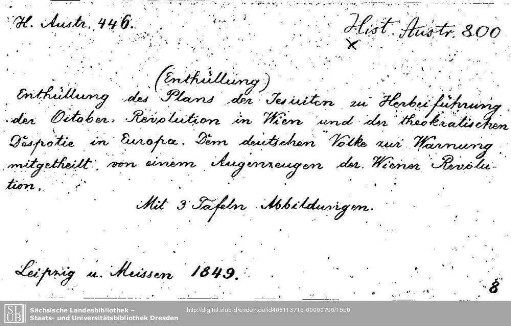 H. Austr. 446.
Hist. Austr. 800
x
(Enthüllung)
Enthüllung des Plans der Jesuiten zu Herbeiführung
der October-Revolution in Wien und der theokratischen
Despotie in Europa. Dem deutschen Volke zur Warnung
mitgetheilt von einem Augenzeugen der Wiener Revolu-
tion.
Mit 3 Tafeln Abbildungen.
Leipzig u. Meissen 1849.
8
SLUB
Sächsische Landesbibliothek –
Staats- und Universitätsbibliothek Dresden